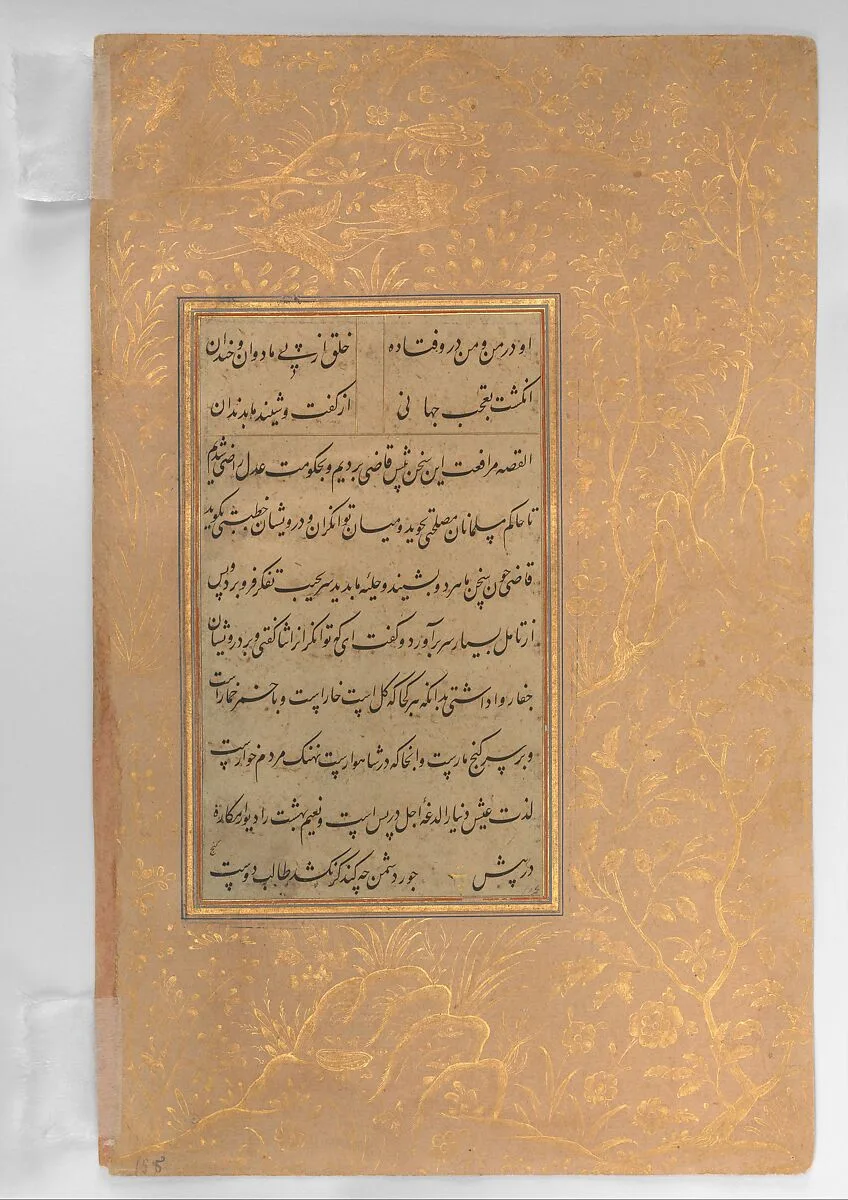 او در من و من درو فتاده خلق از پی ما دوان و خندان
انگشت تعجب جهانی از گفت و شنید ما بدندان
القصه مرافعت این سخن پیش قاضی بردیم و بحکومت عدل راضی شدیم
تا حاکم مسلمانان مصلحتی بجوید و میان توانگران و درویشان خطبتی بگوید
قاضی چون سخن ما هر دو بشنید و حلیه ما بدید سر بجیب تفکر فرو برد و پس
از تامل بسیار سر برآورد و گفت ای که توانگرانرا ثنا گفتی و بر درویشان
جفا روا داشتی بدانکه هر کجا که کل است خارست و با خمر خمارست
و بر سر کنج مارست و انجا که در شاهوارست نهنک مردم خوارست
لذت عیش دنیا را لدغهٔ اجل در پس است و نعیم بهشت را دیوار مکاره
در پیش جور دشمن چه کند گر نکشد طالب دوست
گنج